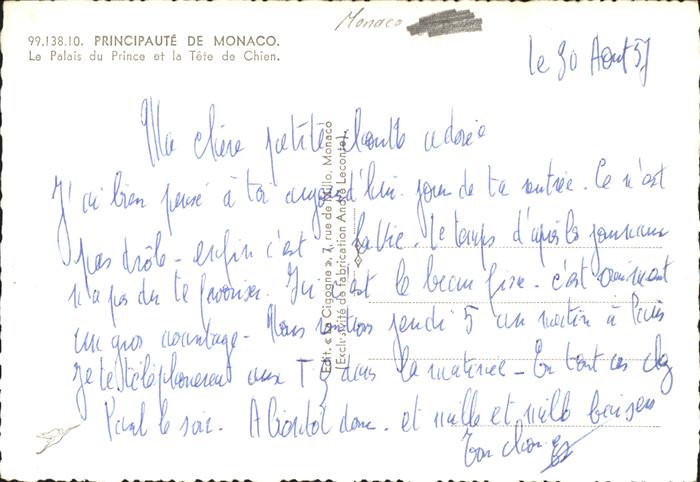 Monaco
99.138.10. PRINCIPAUTÉ DE MONACO.
Le Palais du Prince et la Tête de Chien.
le 30 Août 57
Ma chère petite adorée
J'ai bien pensé à toi aujourd'hui jour de ta rentrée. Ce n'est
pas drôle - enfin c'est la vie. Le temps d'après les journaux
n'a pas dû te favoriser. Ici c'est le beau fixe - c'est vraiment
un gros avantage - Nous rentrons jeudi 5 au matin à Paris
Je te téléphonerai aux dans la matinée - En tout cas chez
Paul le soir. A bientôt donc et mille et mille baisers
Ton
Edit. « La Cigogne », 7, rue de Millo, Monaco
(Exclusivité de fabrication André Leconte).